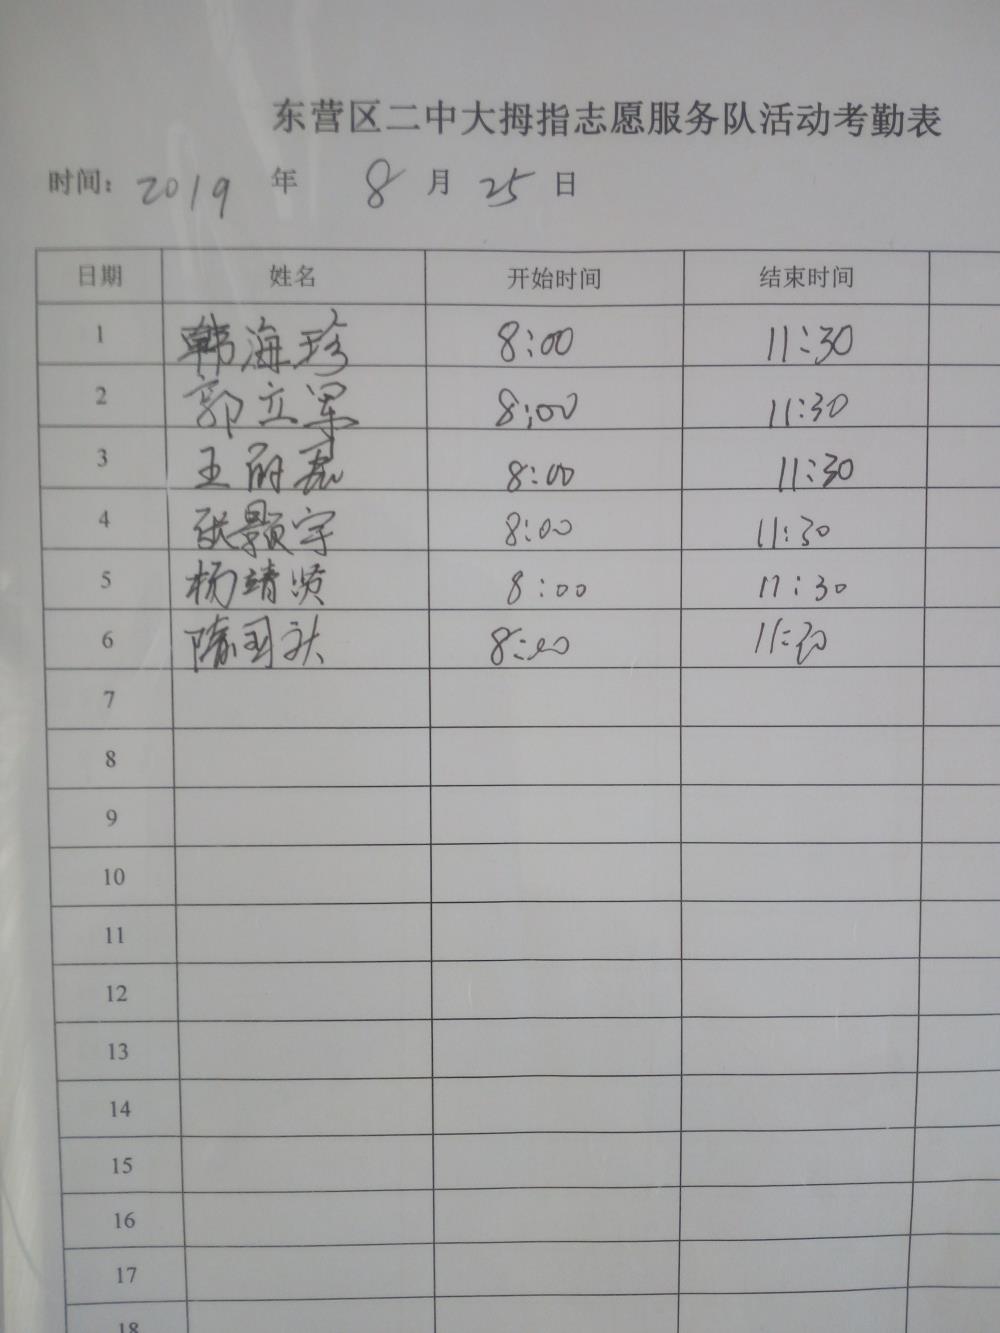 东营区二中大拇指志愿服务队活动考勤表
时间: 2019 年 8 月 25 日
日期 姓名 开始时间 结束时间
1 韩海珍 8:00 11:30
2 郭立军 8:00 11:30
3 王丽磊 8:00 11:30
4 张景宇 8:00 11:30
5 杨靖贤 8:00 11:30
6 隋国秋 8:00 11:30
7
8
9
10
11
12
13
14
15
16
17
18